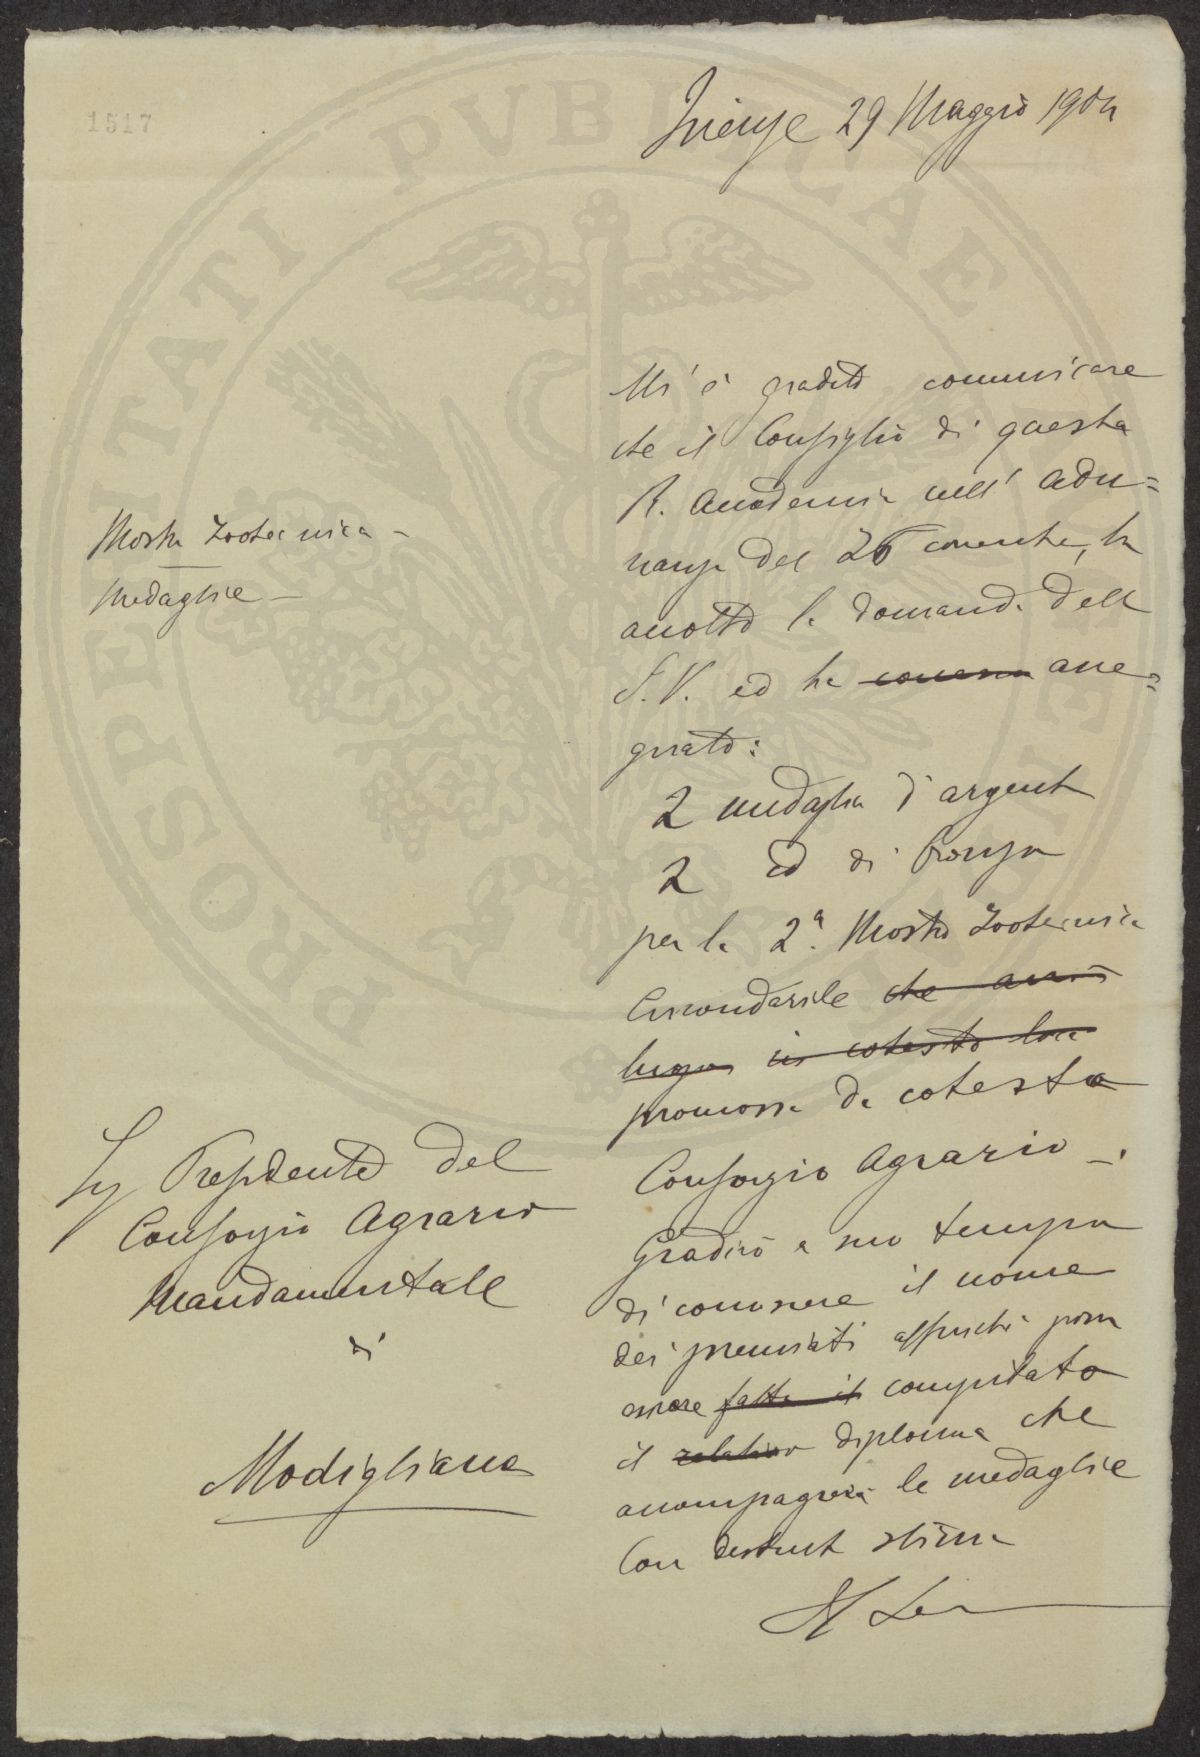 1517
Firenze 29 Maggio 1904
Mostra Zootecnica -
Medaglie -
Mi è gradito comunicare
che il Consiglio di questa
R. Accademia nell' adu=
nanza del 26 corrente, ha
accolto la domanda della
S.V. ed ha ane=
gnato:
2 medaglie d'argento
2 id di bronzo
per la 2ª. Mostra Zootecnica
Circondariale che avrà
luogo in cotesto
promossa da cotesto
Consorzio Agrario -.
Gradirò a suo tempo
di conoscere il nome
dei premiati affinché possa
essere fatto il compilato
il relativo diploma che
accompagnerà le medaglie
Con distinta stima
Sig Presidente del
Consorzio Agrario
Mandamentale
di
Modigliana
PROSPERITATI PVBLICAE